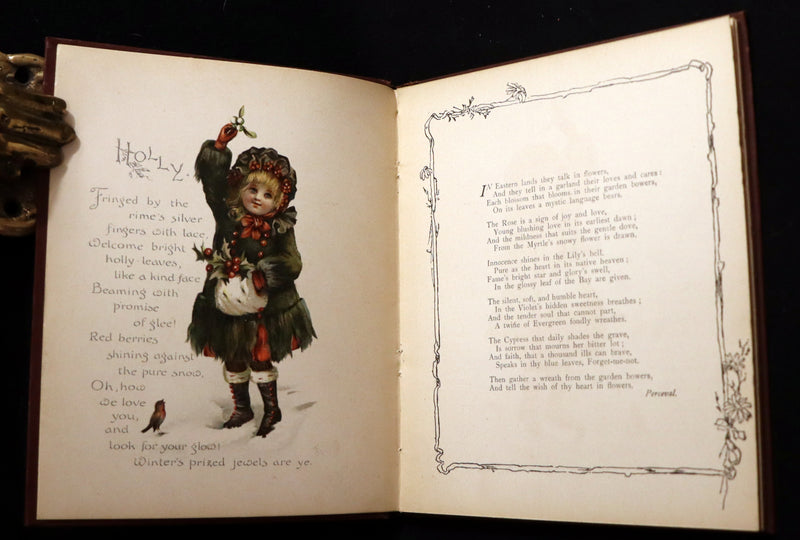 HOLLY.
Fringed by the
rime's silver
fingers with lace,
Welcome bright
holly-leaves,
like a kind face
Beaming with
promise
of glee!
Red berries
shining against
the pure snow,
Oh, how
we love
you,
and
look for your glow!
Winter's prized jewels are ye.
IN Eastern lands they talk in flowers,
And they tell in a garland their loves and cares:
Each blossom that blooms in their garden bowers,
On its leaves a mystic language bears.
The Rose is a sign of joy and love,
Young blushing love in its earliest dawn;
And the mildness that suits the gentle dove,
From the Myrtle's snowy flower is drawn.
Innocence shines in the Lily's bell,
Pure as the heart in its native heaven;
Fame's bright star and glory's swell,
In the glossy leaf of the Bay are given.
The silent, soft, and humble heart,
In the Violet's hidden sweetness breathes;
And the tender soul that cannot part,
A twine of Evergreen fondly wreathes.
The Cypress that daily shades the grave,
Is sorrow that mourns her bitter lot;
And faith, that a thousand ills can brave,
Speaks in thy blue leaves, Forget-me-not.
Then gather a wreath from the garden bowers,
And tell the wish of thy heart in flowers.
Perceval.